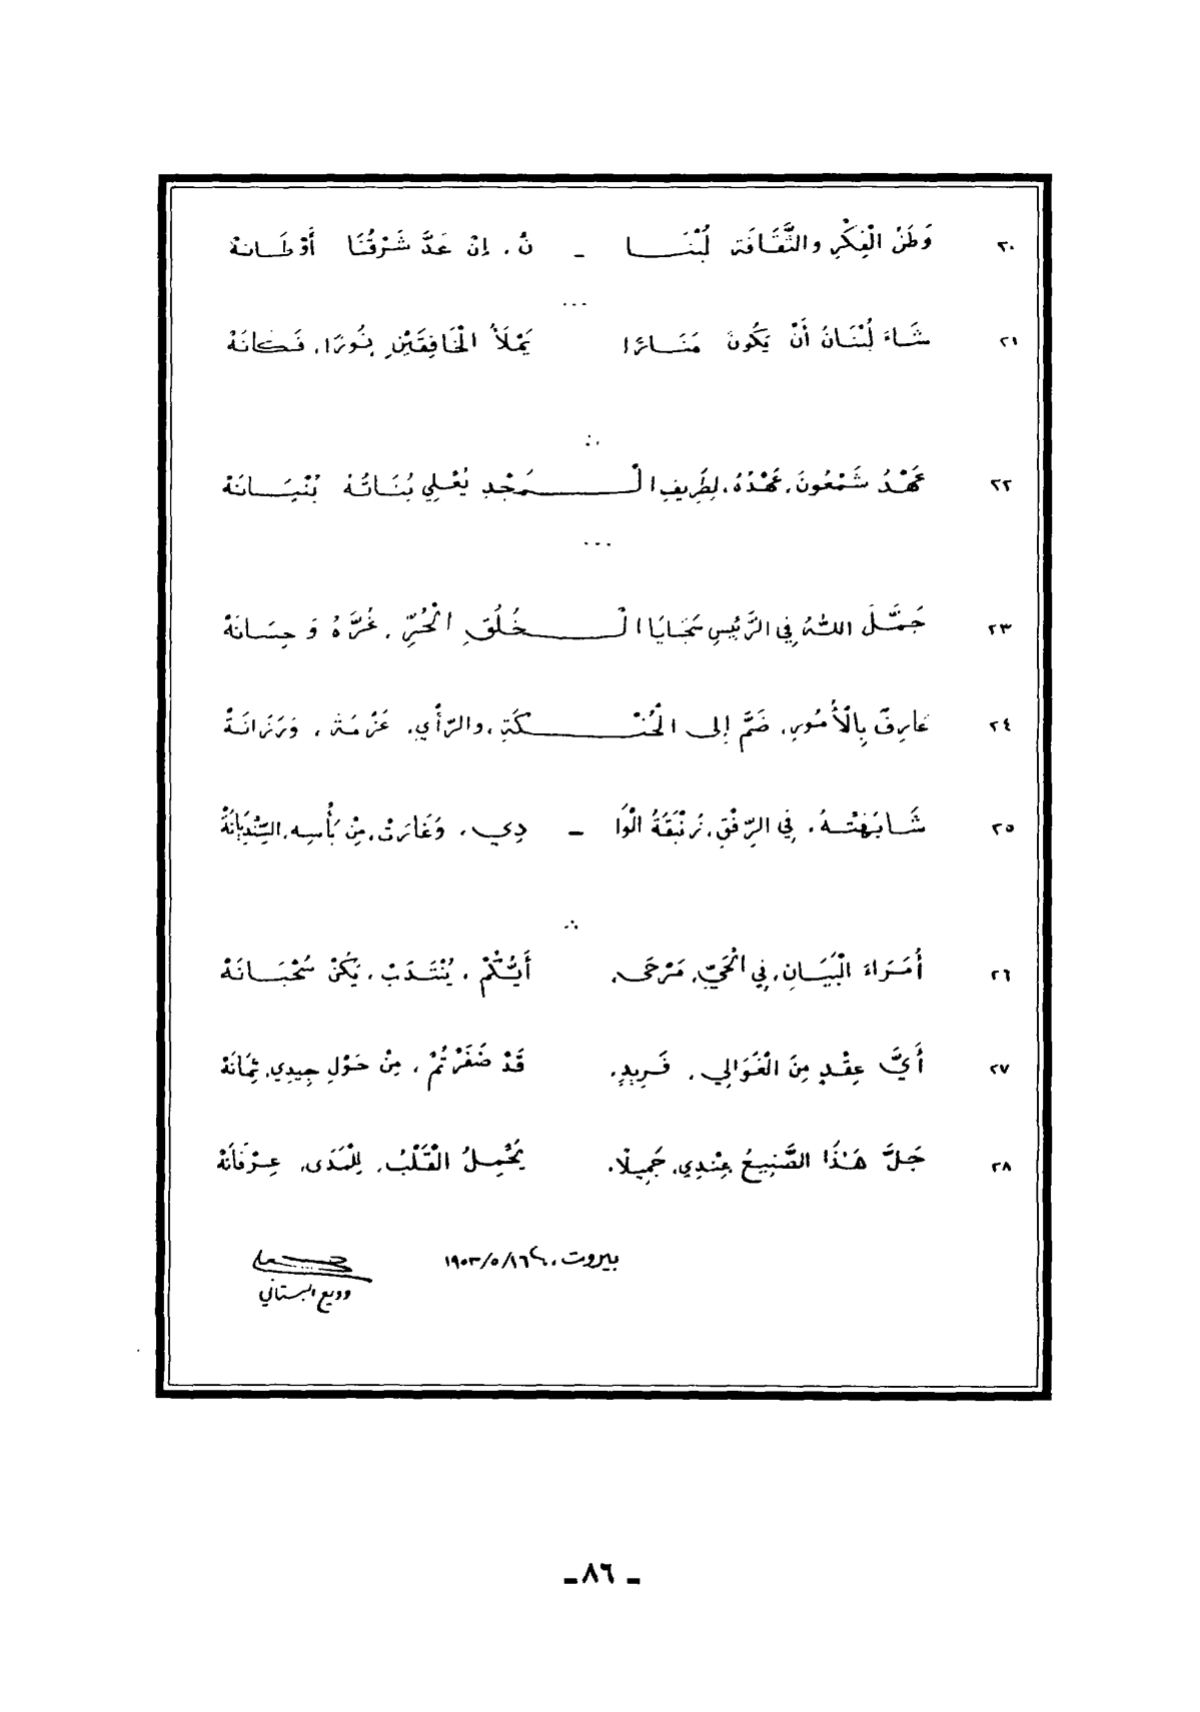 ٢٠ وَطَنُ الْفِكْرِ والثَّقَافَةِ لُبْنَـــا ـ نُ، إِنْ عَدَّ شَرْقُنَا أَوْطَـانَهْ
...
٢١ شَـاءَ لُبْنَـانُ أَنْ يَكُونَ مَنَـارًا يَمْلَأُ الْخَافِقَيْنِ نُورًا، فَـكَانَهْ
∴
٢٢ عَهْدُ شَمْعُونَ، عَهْدُهُ، لِطَرِيفِ الْـــمَجْدِ يُعْلِي بُنَـاتُهُ بُنْيَـــانَهْ
...
٢٣ جَمَّـلَ اللهُ فِي الرَّئِيسِ سَجَـايَا الْـــخُلُقِ الْحُرِّ، غُرَّهُ وَ حِسَـانَهْ
٢٤ عَارِفٌ بِالْأُمُورِ، ضَمَّ إِلى الْحُنْـــكَةِ، والرَّأْيِ، عَزْمَةً، وَرَزَانَـةْ
٢٥ شَـابَهَتْـهُ، فِي الرِّفْقِ، زَنْبَقَةُ الْوَا ـ دِي، وَغَارَتْ، مِنْ بَأْسِهِ، السِّنْدِيَانَةْ
∴
٢٦ أُمَـرَاءَ الْبَيَـــانِ، فِي الْحَيِّ، مَرْحَى، أَيُّـكُمْ، يُنْتَـدَبْ، يَكُنْ سُحْبَـــانَهْ
٢٧ أَيَّ عِقْـدٍ مِنَ الْغَوَالِي، فَـرِيدٍ، قَدْ ضَفَرْتُمْ، مِنْ حَوْلِ جِيدِي، ثِمَانَهْ
٢٨ جَـلَّ هَـٰذَا الصَّنِيعُ عِنْدِي، جَمِيلًا، يَحْمِـلُ الْقَلْبُ، لِلْمَدَى، عِـرْفَانَهْ
بيروت، ١٩٥٣/٥/١٦
وديع البستاني
ـ ٨٦ ـ